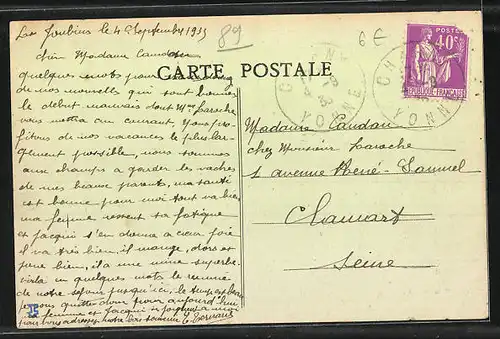 Les Joubins le 4 Septembre 1933
89
6 €
Chère Madame Caudau
quelques mots pour
de nos nouvelles qui sont bonnes
le début mauvais dont Mme Laroche
vous mettra au courant, Nous pro-
fitons de nos vacances le plus lar-
gement possible, nous sommes
aux champs a garder les vaches
de mes beaux parents, ma santé
est bonne pour moi tout va bien
ma femme ressent sa fatigue
et Jacqui s'en donne a cœur joie
il va très bien, il mange, dors et
pour bien, il a une mine superbe
en quelques mots le résumé
de notre séjour jusqu'ici, le temps
quitter donc pour aujourd'hui
femme et Jacqui se joignent a moi
pour vous adresser notre bon souvenir
CARTE POSTALE
YONNE
POSTES
40c
REPUBLIQUE FRANÇAISE
YONNE
Madame Caudau
chez Monsieur Laroche
1 avenue René-Samuel
Clamart
Seine